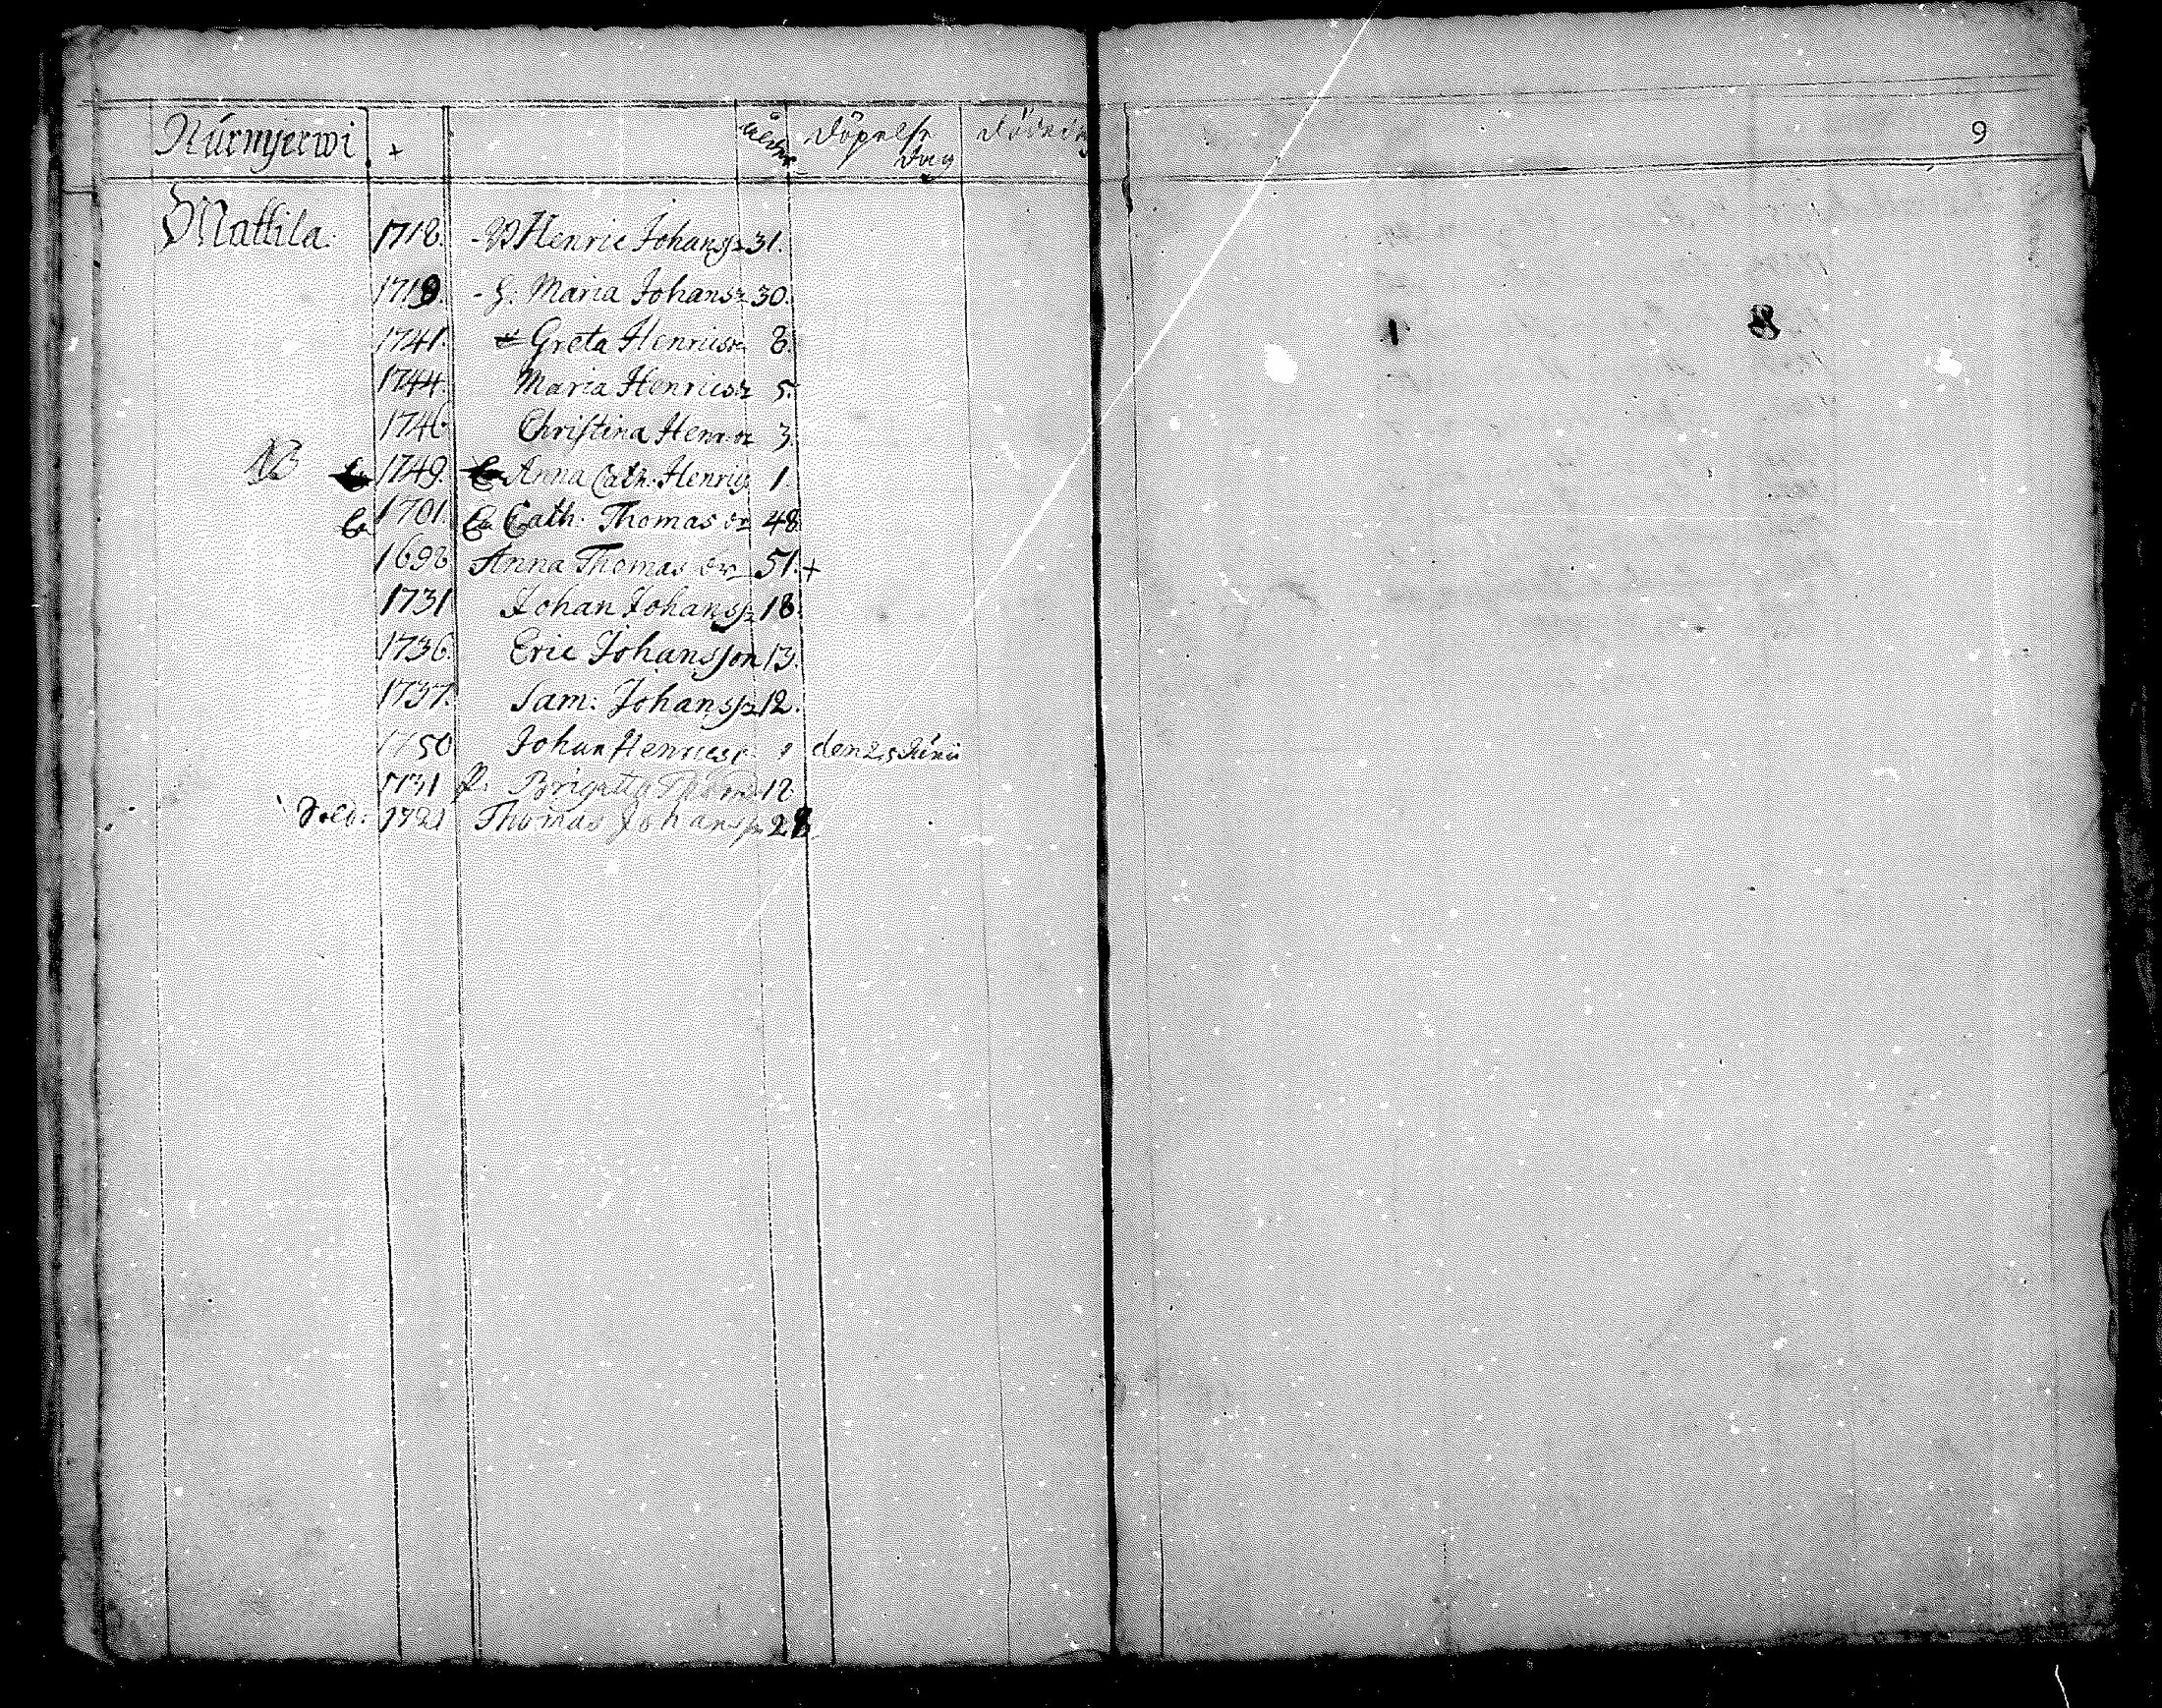 Nurmjerwi + ålder Döpelse dag Dödedag 9
Mattila. 1718. - Henric Johanss 31.
1719. - H: Maria Johansr 30.
1741. Greta Henricsr 8.
1744. Maria Henricsr 5.
1746 Christina Henr dr 3.
NB 1749. Anna Cath: Henrics 1.
1701. Cath: Thomas dr 48
1698 Anna Thomas dr 51. +
1731 Johan Johanss 18.
1736. Eric Johansson 13.
1737. Sam: Johanss 12.
1750 Johan Henricss den 25 Junii
P: Brigetta 12
Sold: 1721 Thomas Johanss 28